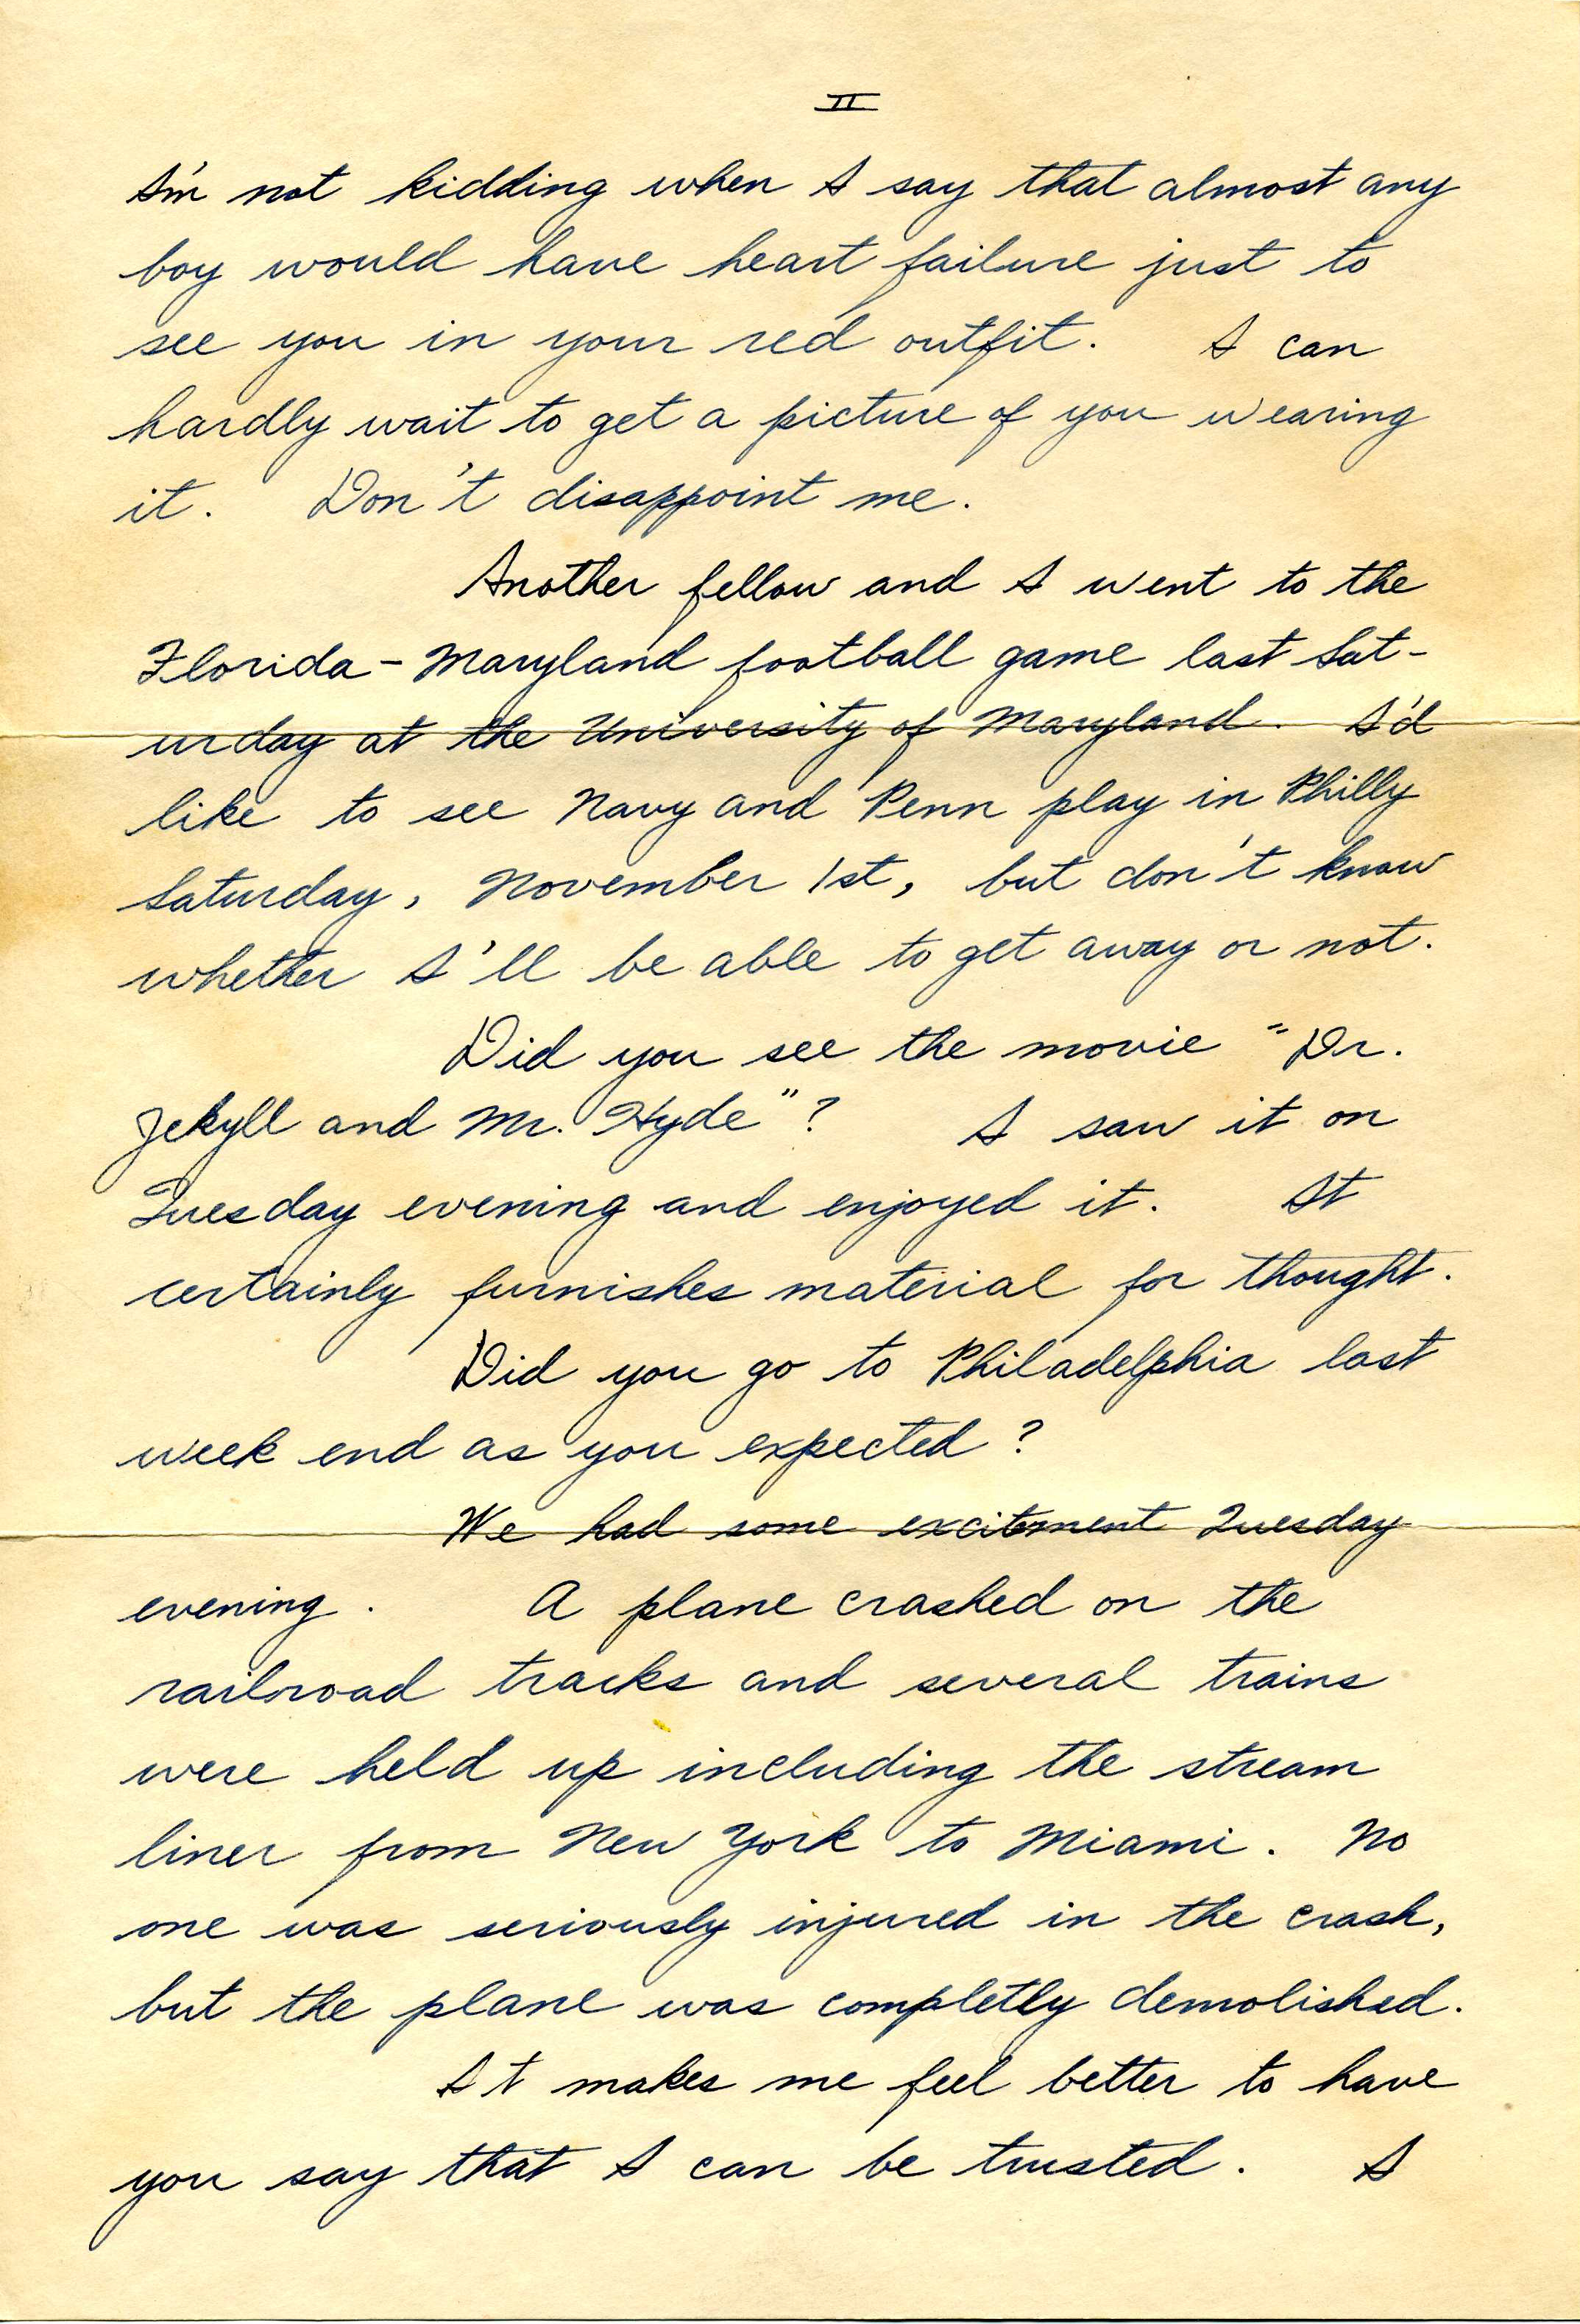 II
I'm not kidding when I say that almost any
boy would have heart failure just to
see you in your red outfit. I can
hardly wait to get a picture of you wearing
it. Don't disappoint me.
Another fellow and I went to the
Florida - Maryland football game last Sat-
urday at the University of Maryland. I'd
like to see Navy and Penn play in Philly
Saturday, November 1st, but don't know
whether I'll be able to get away or not.
Did you see the movie "Dr.
Jekyll and Mr. Hyde"? I saw it on
Tuesday evening and enjoyed it. It
certainly furnishes material for thought.
Did you go to Philadelphia last
week end as you expected?
We had some excitement Tuesday
evening. A plane crashed on the
railroad tracks and several trains
were held up including the stream
liner from New York to Miami. No
one was seriously injured in the crash,
but the plane was completly demolished.
It makes me feel better to have
you say that I can be trusted. I